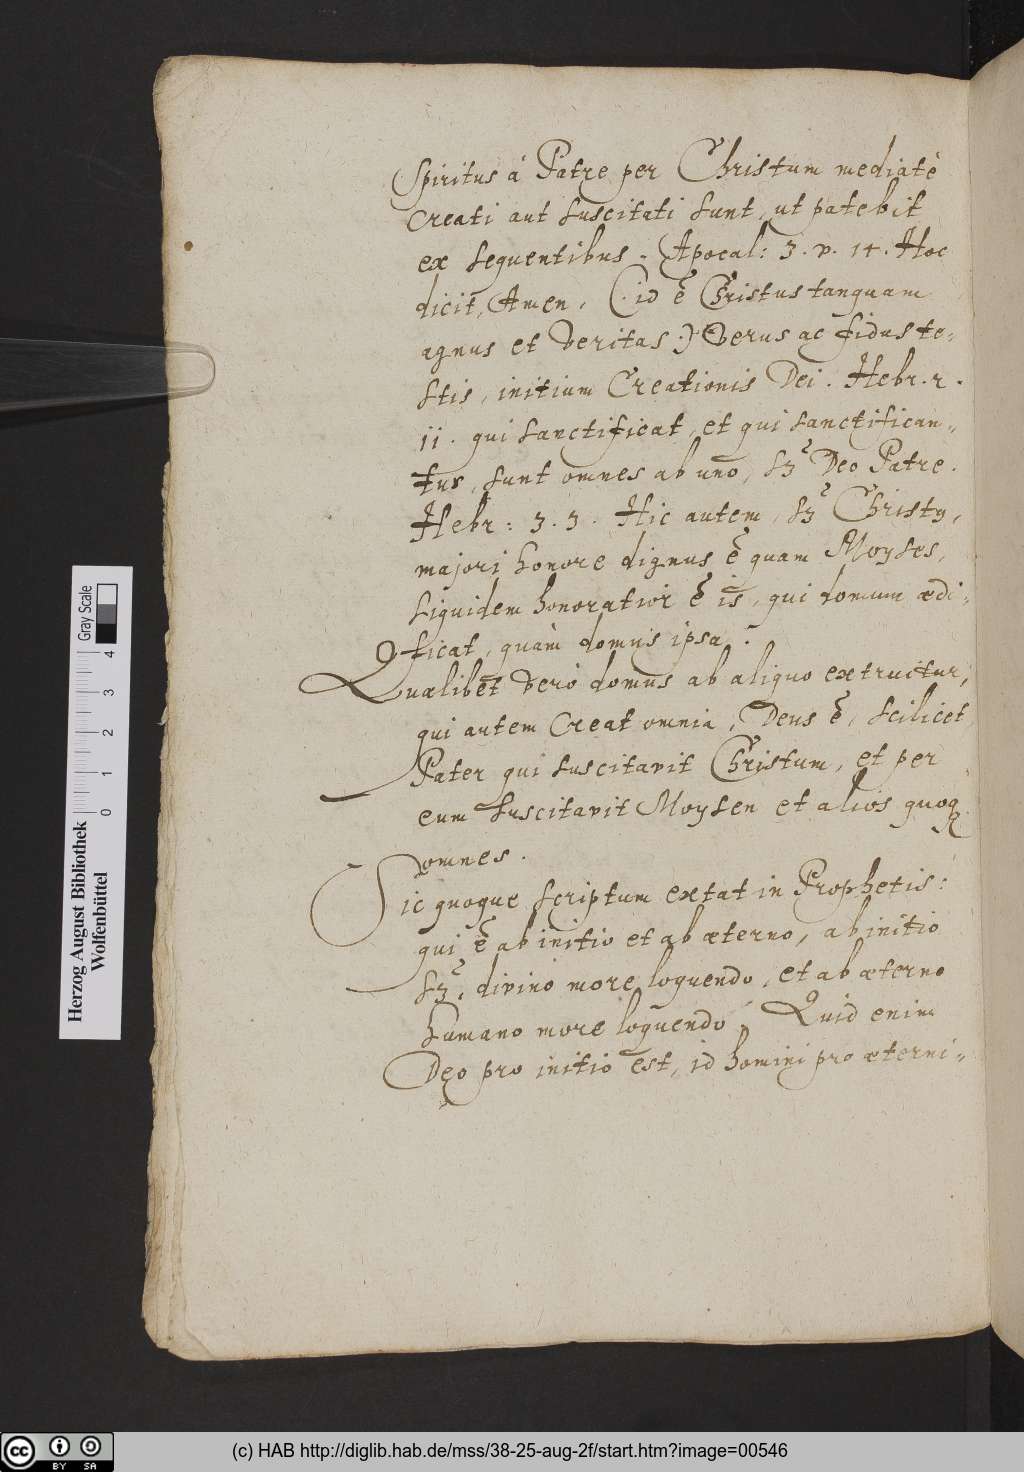 Spiritus á Patre per Christum mediatè
Creati aut suscitati sunt, ut patebit
ex sequentibus. Apocal: 3. v. 14. Hoc
dicit, Amen, (. id ẽ Christus tanquam
agnus et veritas .) verus ac fidus te-
stis, initium Creationis Dei. Hebr. 2.
ii. qui sanctificat, et qui sanctifican-
tur, sunt omnes ab uno, sꝫ Deo Patre.
Hebr: 3. 3. Hic autem, sꝫ Christꝰ,
majori honore dignus ẽ quam Moyses,
siquidem honoratior ẽ is, qui domum ædi-
ficat, quàm domus ipsa.
Quælibet verò domus ab aliquo extruitur,
qui autem Creat omnia, Deus ẽ, scilicet
Pater qui suscitavit Christum, et per
eum suscitavit Moysen et alios quoqꝫ
omnes.
Sic quoque scriptum extat in Prophetis:
qui ẽ ab initio et ab æterno, ab initio
sꝫ, divino more loquendo, et ab æterno
humano more loquendo, Quid enim
Deo pro initio est, id homini pro æterni-
Herzog August Bibliothek
Wolfenbüttel
Gray Scale
0 1 2 3 4
cc BY SA
(c) HAB http://diglib.hab.de/mss/38-25-aug-2f/start.htm?image=00546